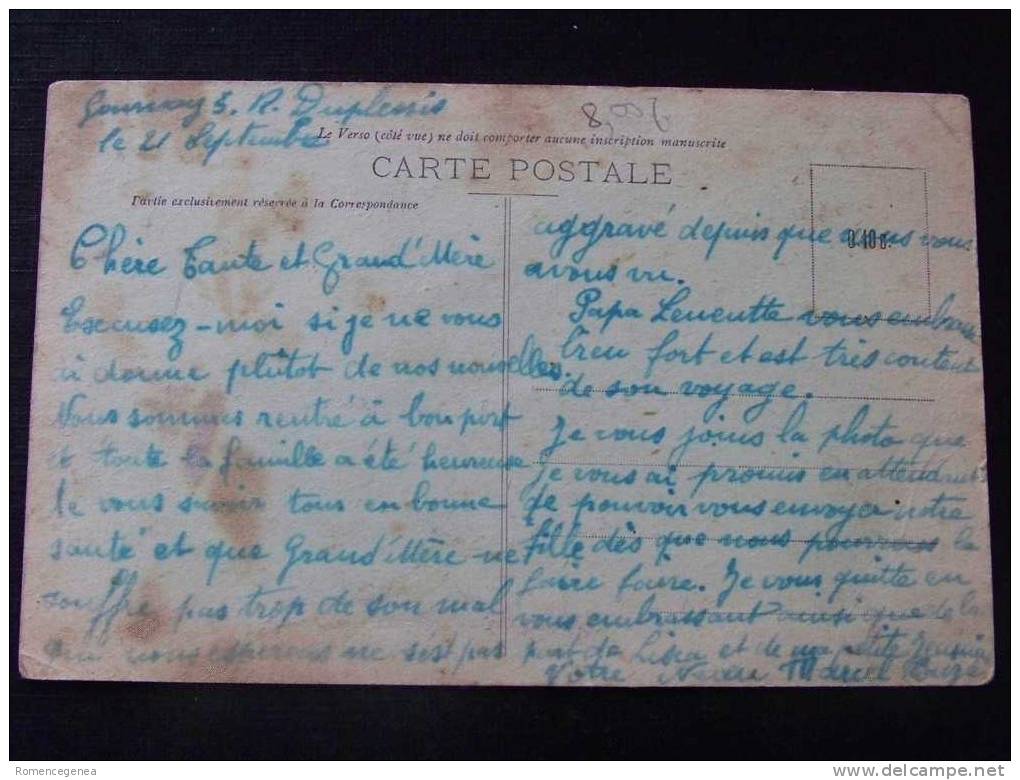 Gournay 5. R. Duplessis
le 21 Septembre
8,00 €
Le Verso (côté vue) ne doit comporter aucune inscription manuscrite
CARTE POSTALE
Partie exclusivement réservée à la Correspondance
Chère Tante et Grand'Mère
Excusez-moi si je ne vous
ai donné plûtot de nos nouvelles.
Nous sommes rentré à bon port
et toute la famille a été heureuse
de vous savoir tous en bonne
santé et que Grand'Mère ne
souffre pas trop de son mal
qui nous espérons ne s'est pas
aggravé depuis que nous vous
avons vu.
0.40 c.
Papa vous embrasse
bien fort et est très content
de son voyage.
Je vous joins la photo que
je vous ai promis en attendant
de pouvoir vous envoyer notre
fille dès que nous pourrons la
faire faire. Je vous quitte en
vous embrassant ainsi que de la
part de et de ma petite
Votre Neveu Marcel
Romencegenea
delcampe.net